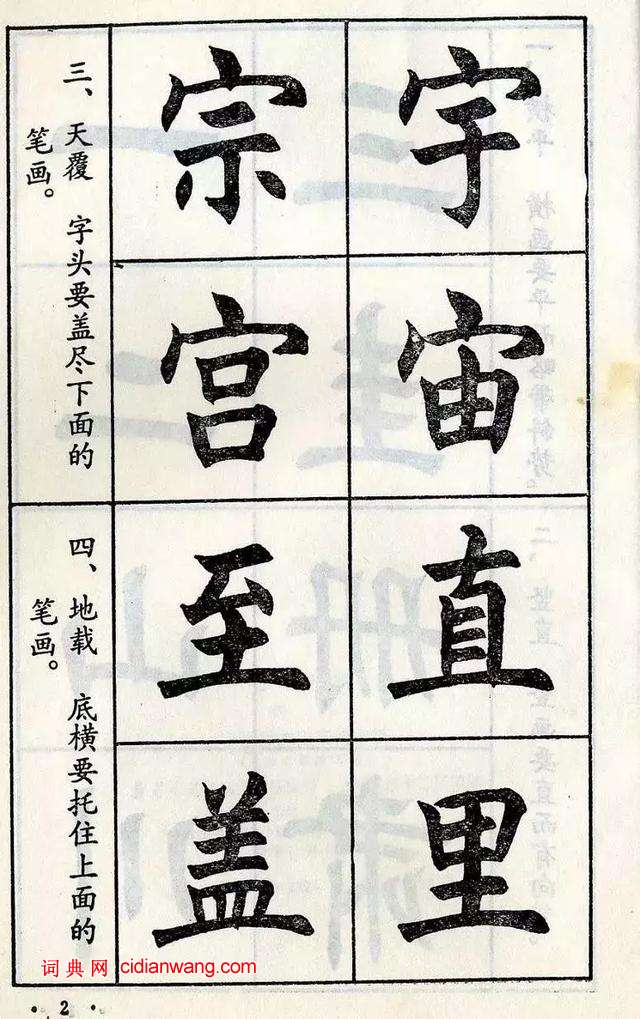 宇
宙
直
里
宗
宫
至
盖
三、天覆 字头要盖尽下面的
笔画。
四、地载 底横要托住上面的
笔画。
词典网 cidianwang.com
·2·